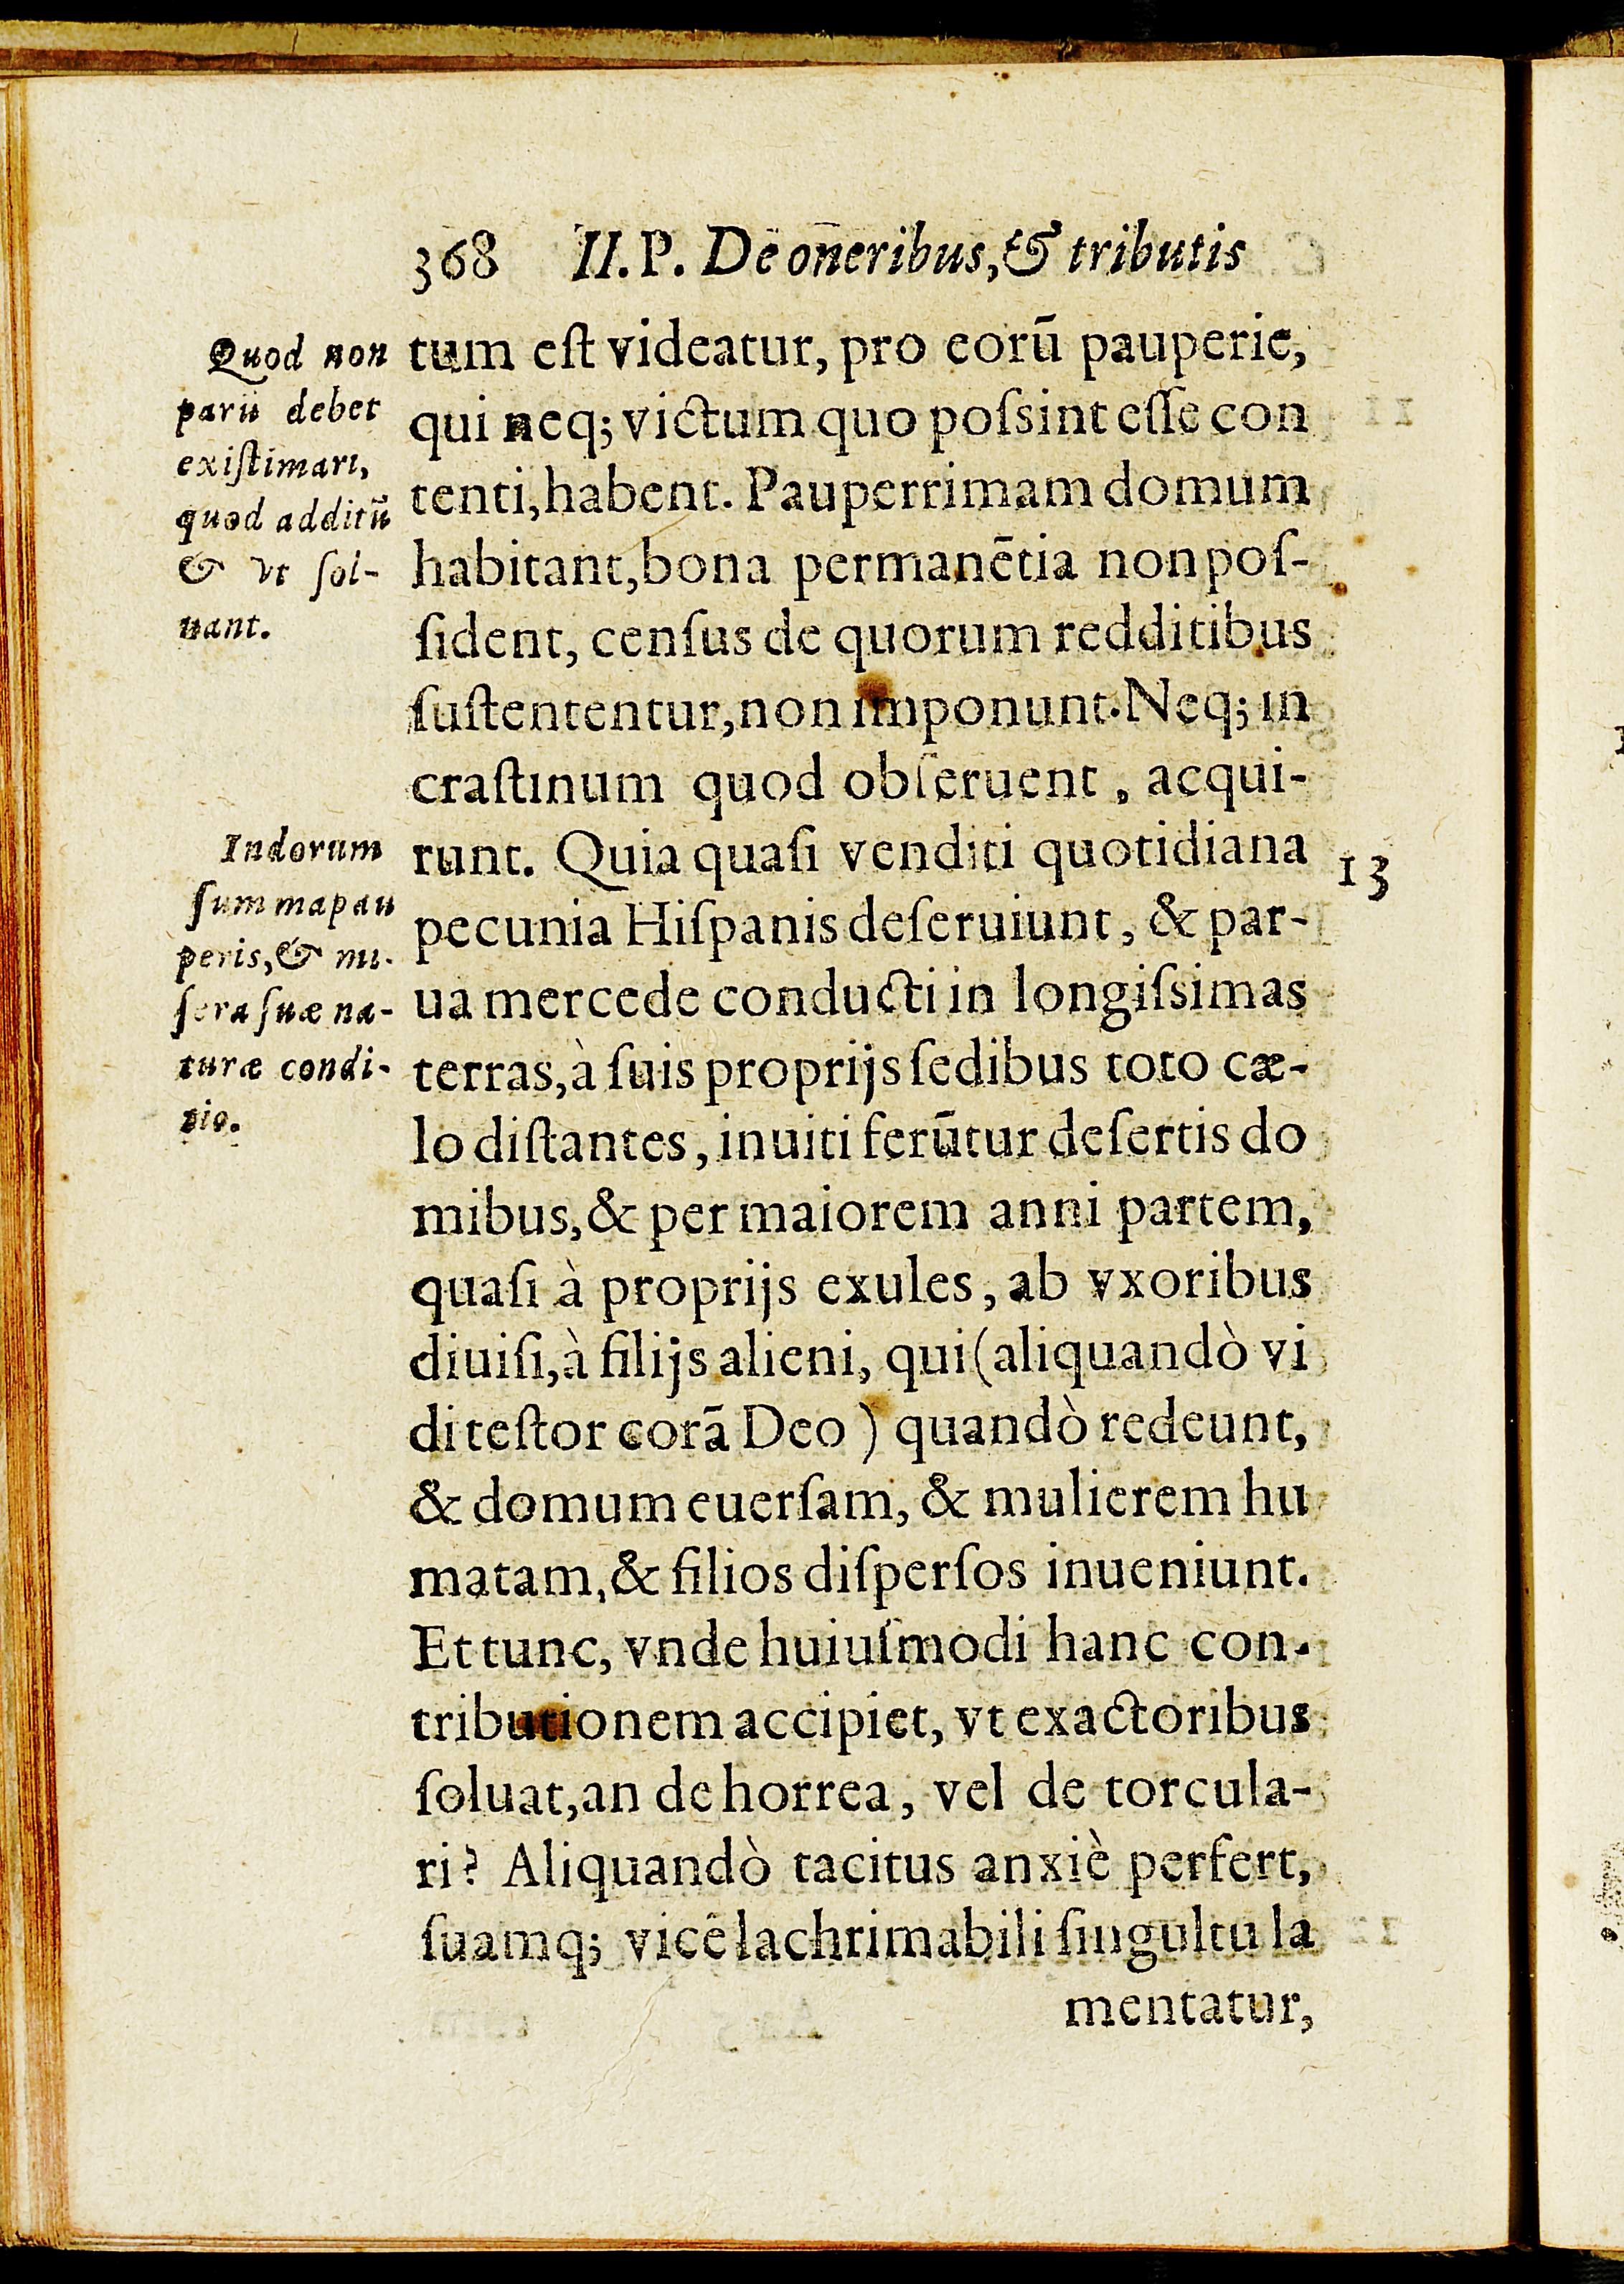 368 II. P. De oneribus, & tributis
Quod non
parū debet
exiſtimari,
quod additū
& vt ſol-
uant.
tum eſt videatur, pro eorū pauperie,
qui neq; victum quo poſsint eſſe con
tenti, habent. Pauperrimam domum
habitant, bona permanētia non poſ-
ſident, cenſus de quorum redditibus
ſuſtententur, non imponunt. Neq; in
craſtinum quod obſeruent, acqui-
Indorum
ſumma pau
peris, & mi-
ſera ſuæ na-
turæ condi-
tio.
runt. Quia quaſi venditi quotidiana
13
pecunia Hiſpanis deſeruiunt, & par-
ua mercede conducti in longiſsimas
terras, à ſuis proprijs ſedibus toto cæ-
lo diſtantes, inuiti ferūtur deſertis do
mibus, & per maiorem anni partem,
quaſi à proprijs exules, ab vxoribus
diuiſi, à filijs alieni, qui (aliquandò vi
di teſtor corā Deo) quandò redeunt,
& domum euerſam, & mulierem hu
matam, & filios diſperſos inueniunt.
Et tunc, vnde huiuſmodi hanc con-
tributionem accipiet, vt exactoribus
ſoluat, an de horrea, vel de torcula-
ri? Aliquandò tacitus anxiè perfert,
ſuamq; vicē lachrimabili ſingultu la
mentatur,